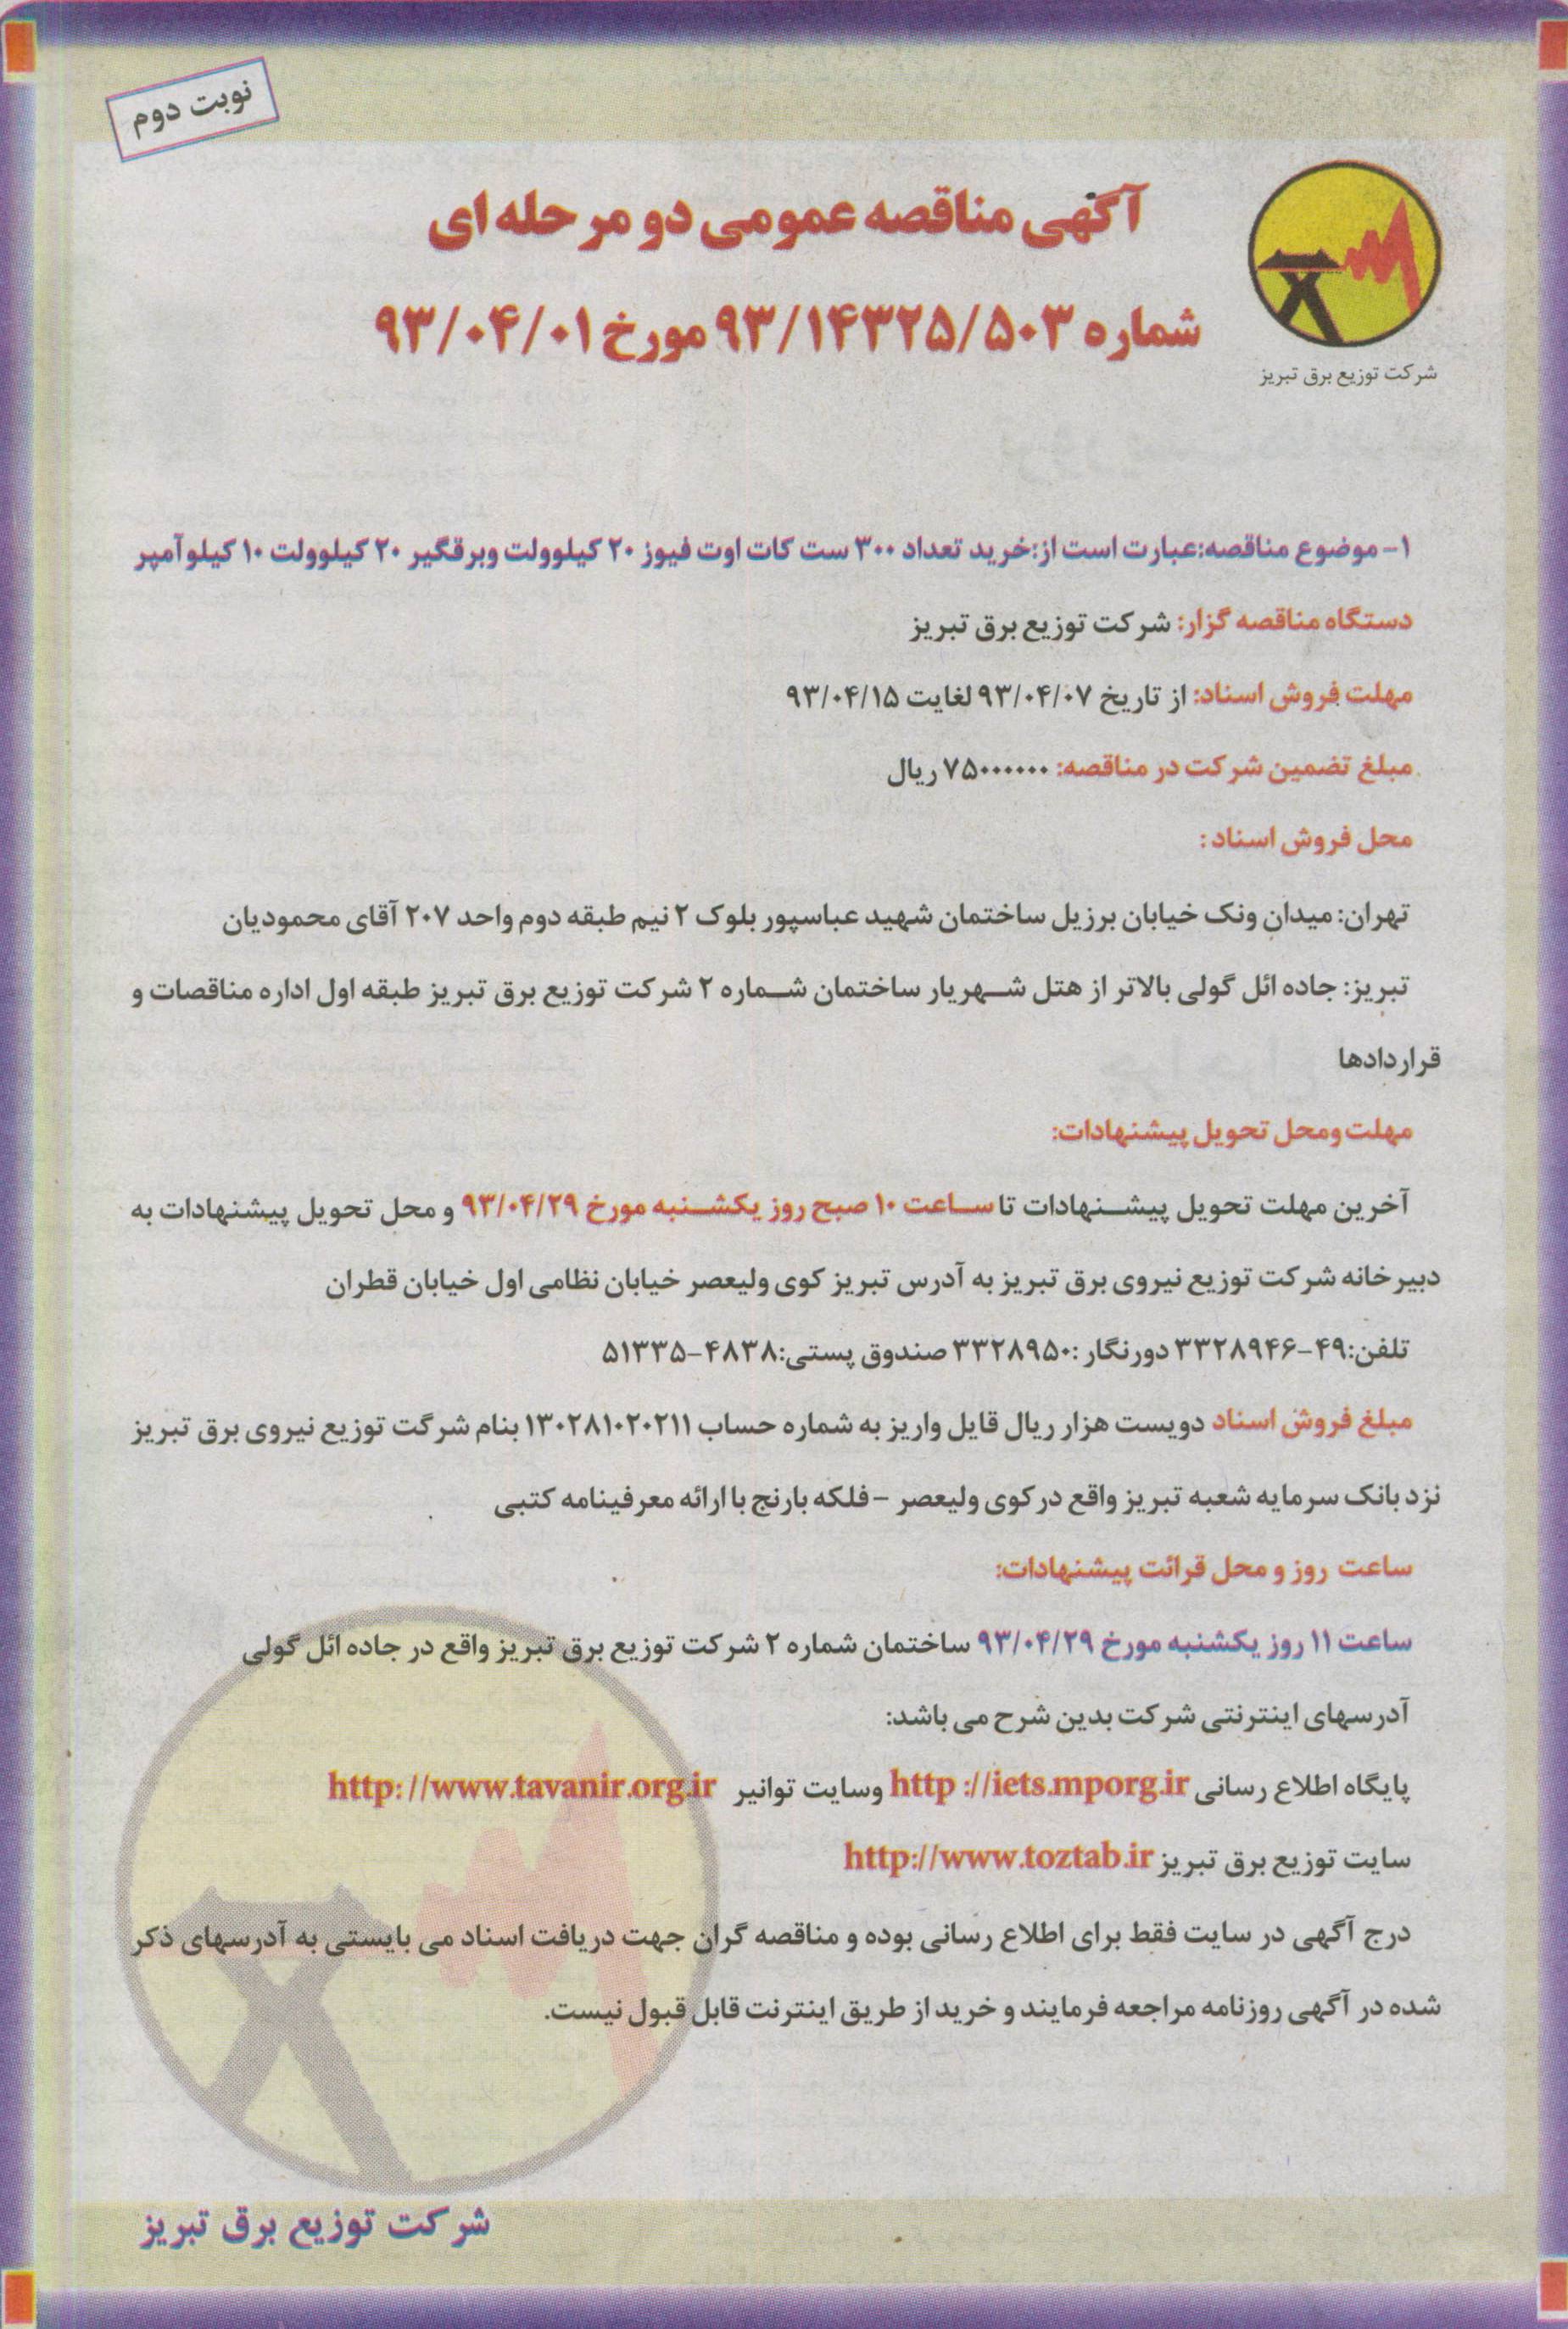 نوبت دوم
آگهی مناقصه عمومی دو مرحله ای
شماره ۹۳/۱۴۳۲۵/۵۰۳ مورخ ۹۳/۰۴/۰۱
شرکت توزیع برق تبریز
۱- موضوع مناقصه:عبارت است از:خرید تعداد ۳۰۰ ست کات اوت فیوز ۲۰ کیلوولت وبرقگیر ۲۰ کیلوولت ۱۰ کیلوآمپر
دستگاه مناقصه گزار: شرکت توزیع برق تبریز
مهلت فروش اسناد: از تاریخ ۹۳/۰۴/۰۷ لغایت ۹۳/۰۴/۱۵
مبلغ تضمین شرکت در مناقصه: ۷۵۰۰۰۰۰۰۰ ریال
محل فروش اسناد :
تهران: میدان ونک خیابان برزیل ساختمان شهید عباسپور بلوک ۲ نیم طبقه دوم واحد ۲۰۷ آقای محمودیان
تبریز: جاده ائل گولی بالاتر از هتل شهریار ساختمان شماره ۲ شرکت توزیع برق تبریز طبقه اول اداره مناقصات و
قراردادها
مهلت ومحل تحویل پیشنهادات:
آخرین مهلت تحویل پیشنهادات تا ساعت ۱۰ صبح روز یکشنبه مورخ ۹۳/۰۴/۲۹ و محل تحویل پیشنهادات به
دبیرخانه شرکت توزیع نیروی برق تبریز به آدرس تبریز کوی ولیعصر خیابان نظامی اول خیابان قطران
تلفن:۴۹-۳۳۲۸۹۴۶ دورنگار :۳۳۲۸۹۵۰ صندوق پستی:۴۸۳۸-۵۱۳۳۵
مبلغ فروش اسناد دویست هزار ریال قایل واریز به شماره حساب ۱۳۰۲۸۱۰۲۰۲۱۱ بنام شرگت توزیع نیروی برق تبریز
نزد بانک سرمایه شعبه تبریز واقع در کوی ولیعصر – فلکه بارنج با ارائه معرفینامه کتبی
ساعت روز و محل قرائت پیشنهادات:
ساعت ۱۱ روز یکشنبه مورخ ۹۳/۰۴/۲۹ ساختمان شماره ۲ شرکت توزیع برق تبریز واقع در جاده ائل گولی
آدرسهای اینترنتی شرکت بدین شرح می باشد:
پایگاه اطلاع رسانی http ://iets.mporg.ir وسایت توانیر http://www.tavanir.org.ir
سایت توزیع برق تبریز http://www.toztab.ir
درج آگهی در سایت فقط برای اطلاع رسانی بوده و مناقصه گران جهت دریافت اسناد می بایستی به آدرسهای ذکر
شده در آگهی روزنامه مراجعه فرمایند و خرید از طریق اینترنت قابل قبول نیست.
شرکت توزیع برق تبریز